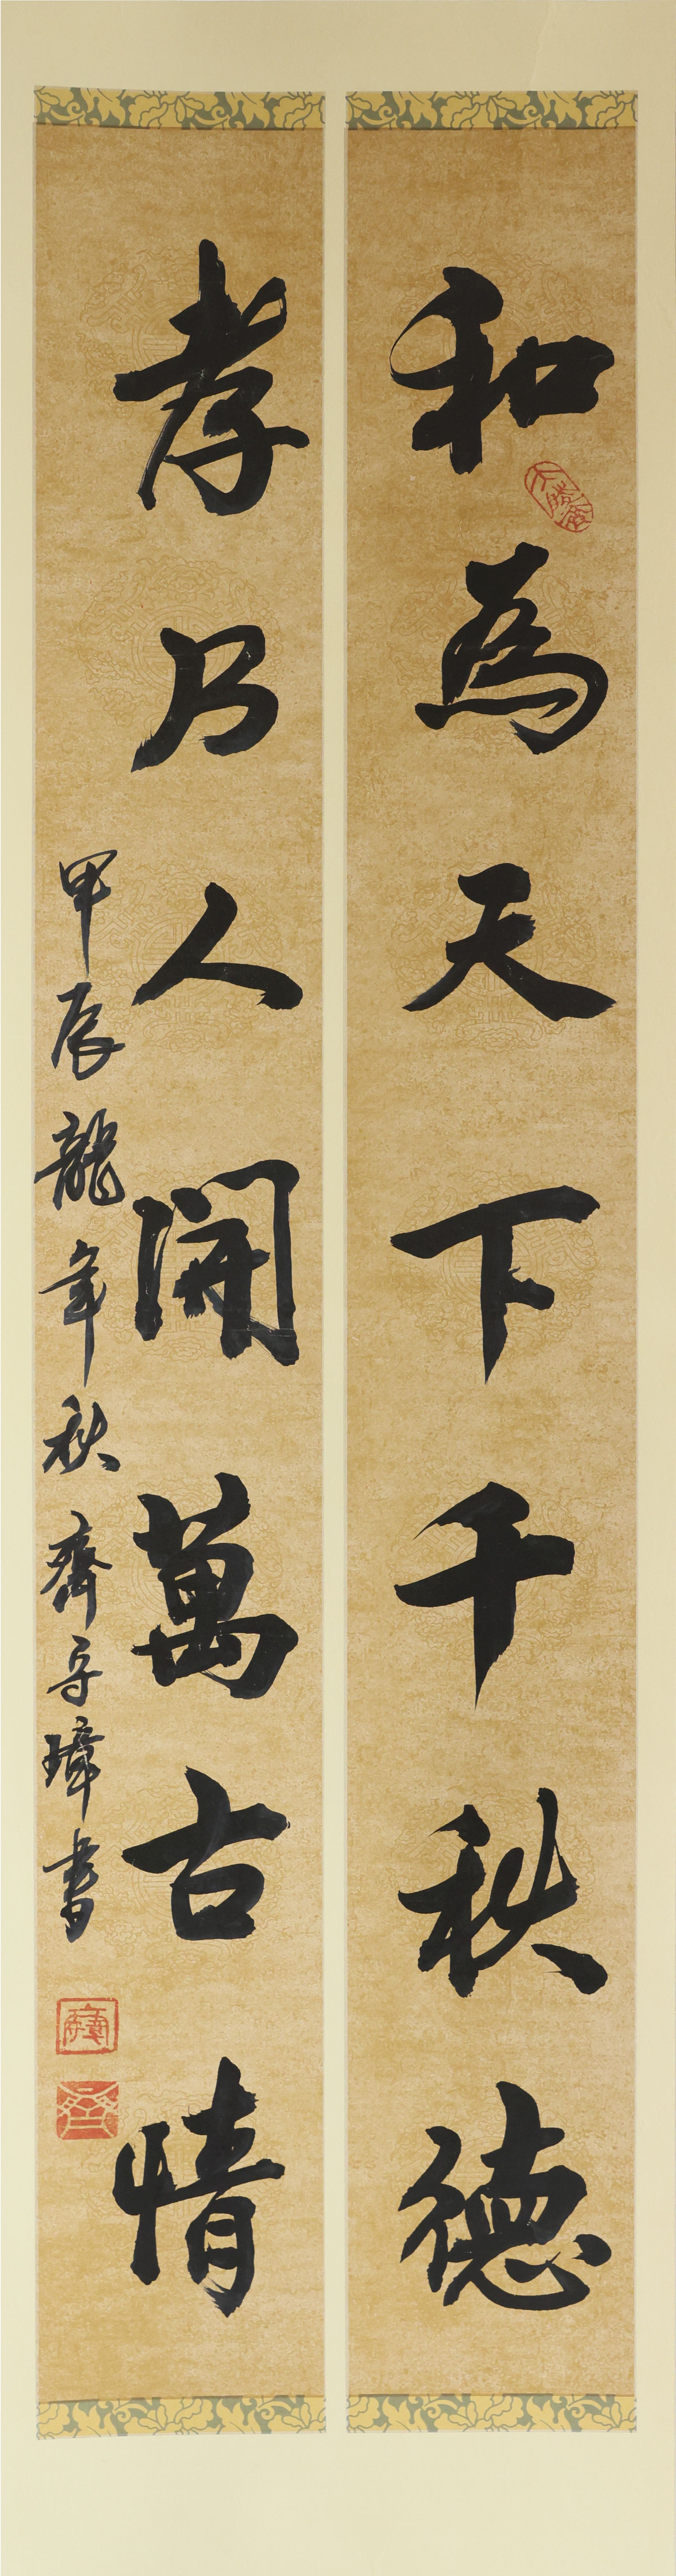 和為天下千秋德
孝乃人間萬古情
甲辰龍年秋齊守璋書